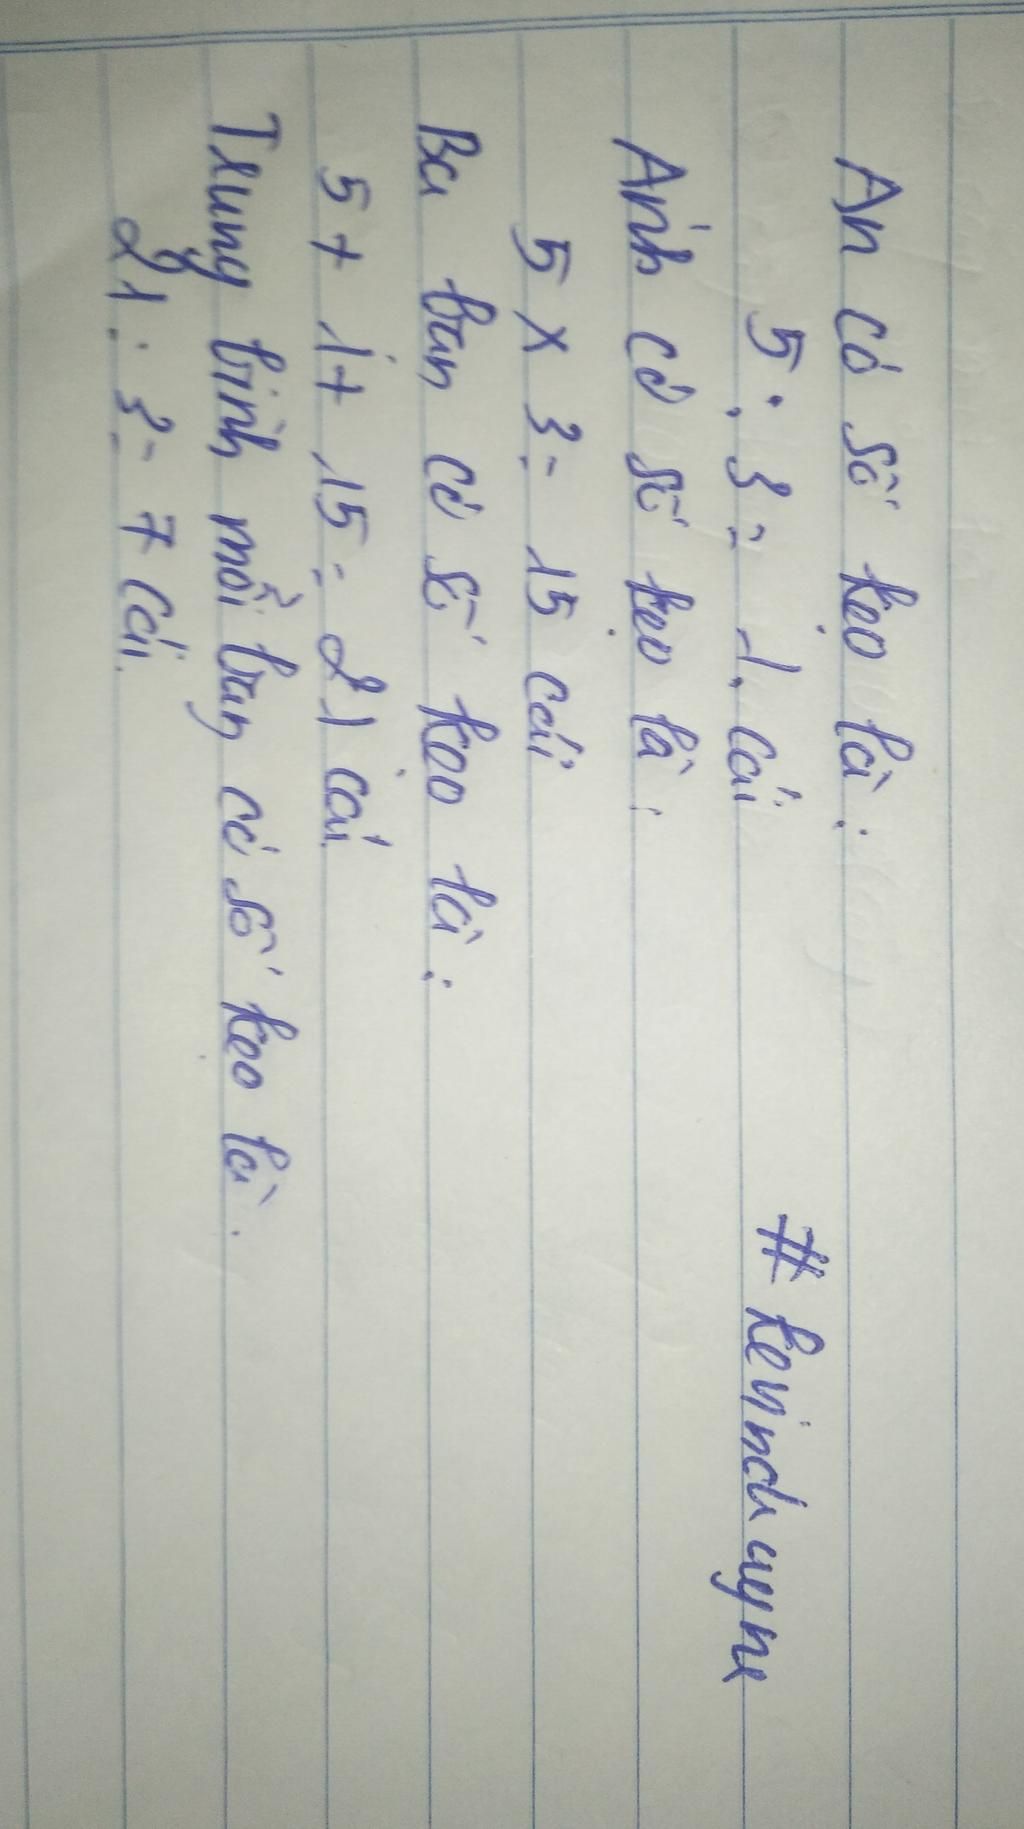 An có số kẹo là:
5 : 3 = 1 cái
# kevinduynne
Ánh có số kẹo là:
5 x 3 = 15 cái
Ba bạn có số kẹo là:
5 + 1 + 15 = 21 cái
Trung bình mỗi bạn có số kẹo là.
21 : 3 = 7 cái.